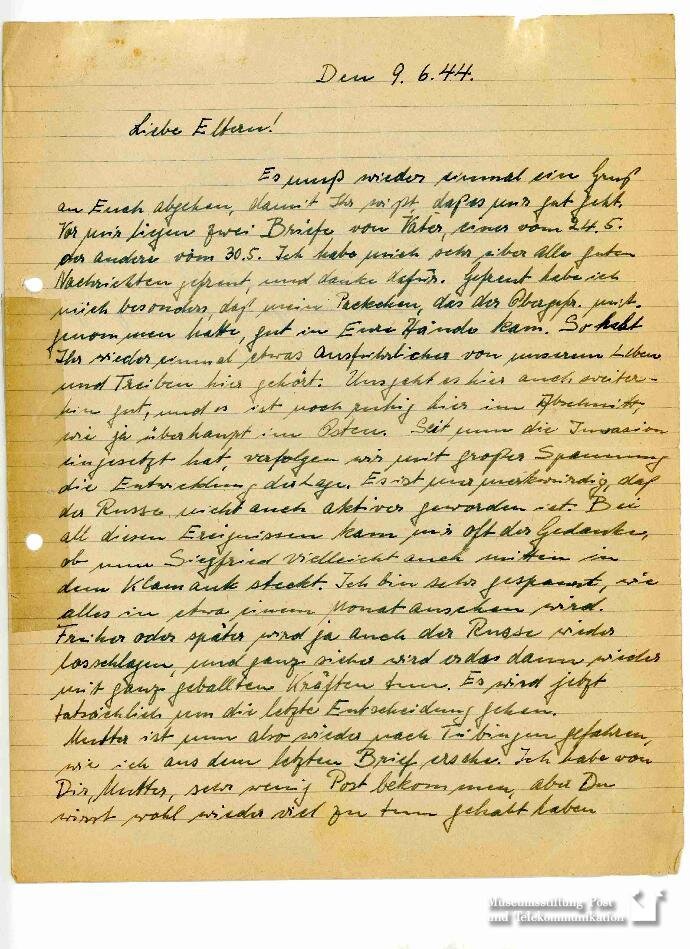 Den 9. 6. 44.
Liebe Eltern!
Es muß wieder einmal ein Gruß
an Euch abgehen, damit Ihr wißt daß es mir gut geht.
Vor mir liegen zwei Briefe von Vater, einer vom 24.5.
der andere vom 30.5. Ich habe mich sehr über alle guten
Nachrichten gefreut, und danke dafür. Gefreut habe ich
mich besonders, daß mein Päckchen, das der Obergefr. mit-
genommen hatte, gut in Eure Hände kam. So habt
Ihr wieder einmal etwas ausführlicher von unserem Leben
und Treiben hier gehört. Uns geht es hier auch weiter-
hin gut, und es ist noch ruhig hier im Abschnitt,
wie ja überhaupt im Osten. Seit nun die Invasion
eingesetzt hat, verfolgen wir mit großer Spannung
die Entwicklung der Lage. Es ist nur merkwürdig, daß
der Russe nicht auch aktiver geworden ist. Bei
all diesen Ereignissen kam mir oft der Gedanke,
ob nun Siegfried vielleicht auch mitten in
dem Klamauk steckt. Ich bin sehr gespannt, wie
alles in etwa einem Monat aussehen wird.
Früher oder später wird ja auch der Russe wieder
losschlagen, und ganz sicher wird er das dann wieder
mit ganz geballten Kräften tun. Es wird jetzt
tatsächlich um die letzte Entscheidung gehen.
Mutter ist nun also wieder nach Tübingen gefahren,
wie ich aus dem letzten Brief ersehe. Ich habe von
Dir, Mutter, sehr wenig Post bekommen, aber Du
wirst wohl wieder viel zu tun gehabt haben
Museumsstiftung Post
und Telekommunikation